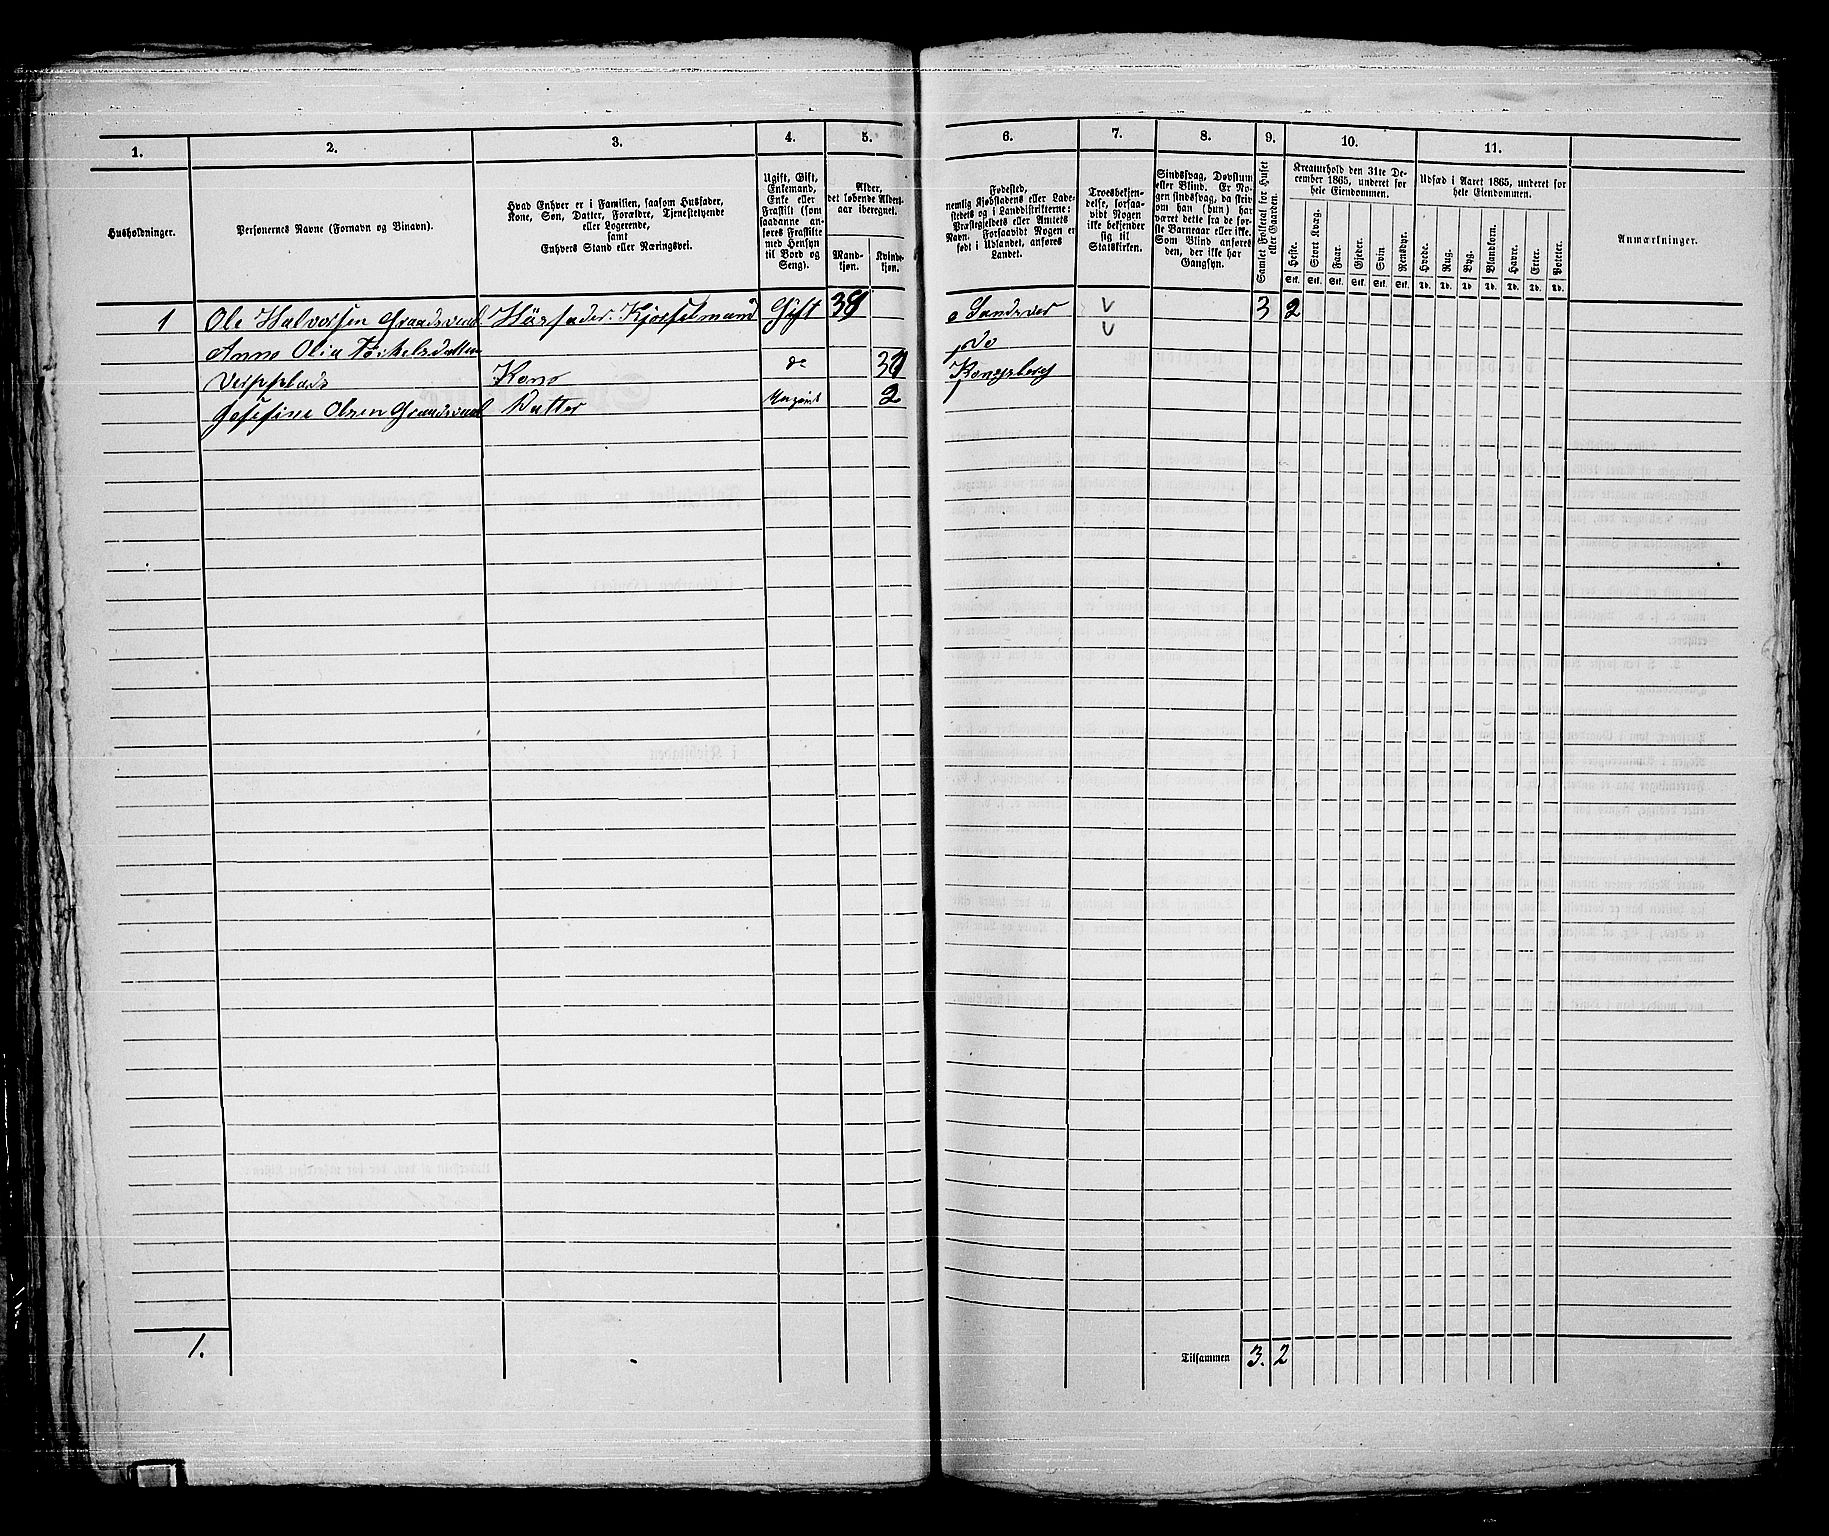 1. 2. 3. 4. 5. 6. 7. 8. 9. 10. 11.
Husholdninger.
Personernes Navne (Fornavn og Binavn).
Hvad Enhver er i Familien, saasom Husfader,
Kone, Søn, Datter, Forældre, Tjenestetyende
eller Logerende,
samt
Enhvers Stand eller Næringsvei.
Ugift, Gift,
Enkemand,
Enke eller
Fraskilt (som
saadanne an-
føres Fraskilte
med Hensyn
til Bord og
Seng).
Alder,
det løbende Alders-
aar iberegnet.
Mand-
kjøn.
Kvinde-
kjøn.
Fødested,
nemlig Kjøbstadens eller Lade-
stedets og i Landdistrikterne:
Præstegjeldets eller Amtets
Navn. Forsaavidt Nogen er
født i Udlandet, anføres
Landet.
Troesbekjen-
delse, forsaa-
vidt Nogen
ikke bekjender
sig til
Statskirken.
Sindssvag, Døvstum
eller Blind. Er No-
gen sindssvag, da skriv
om han (hun) har
været dette fra de før-
ste Barneaar eller ikke.
Som Blind anføres
den, der ikke har
Gangsyn.
Samlet Folketal for Huset
eller Gaarden.
Kreaturhold den 31te De-
cember 1865, underet for
hele Eiendommen.
Heste. Stort Kvæg. Faar. Gjeder. Svin. Rensdyr.
Stk. Stk. Stk. Stk. Stk. Stk.
Udsæd i Aaret 1865, underet for
hele Eiendommen.
Hvede. Rug. Byg. Blandkorn. Havre. Erter. Poteter.
Td. Td. Td. Td. Td. Td. Td.
Anmærkninger.
1 Ole Halvorsen Husfader. Gift 39 Sandsvær 3 2
Anne Olia do
Kone do Kongsberg
Josefine Olsen Datter Ugivt 2
1.
Tilsammen 3. 2